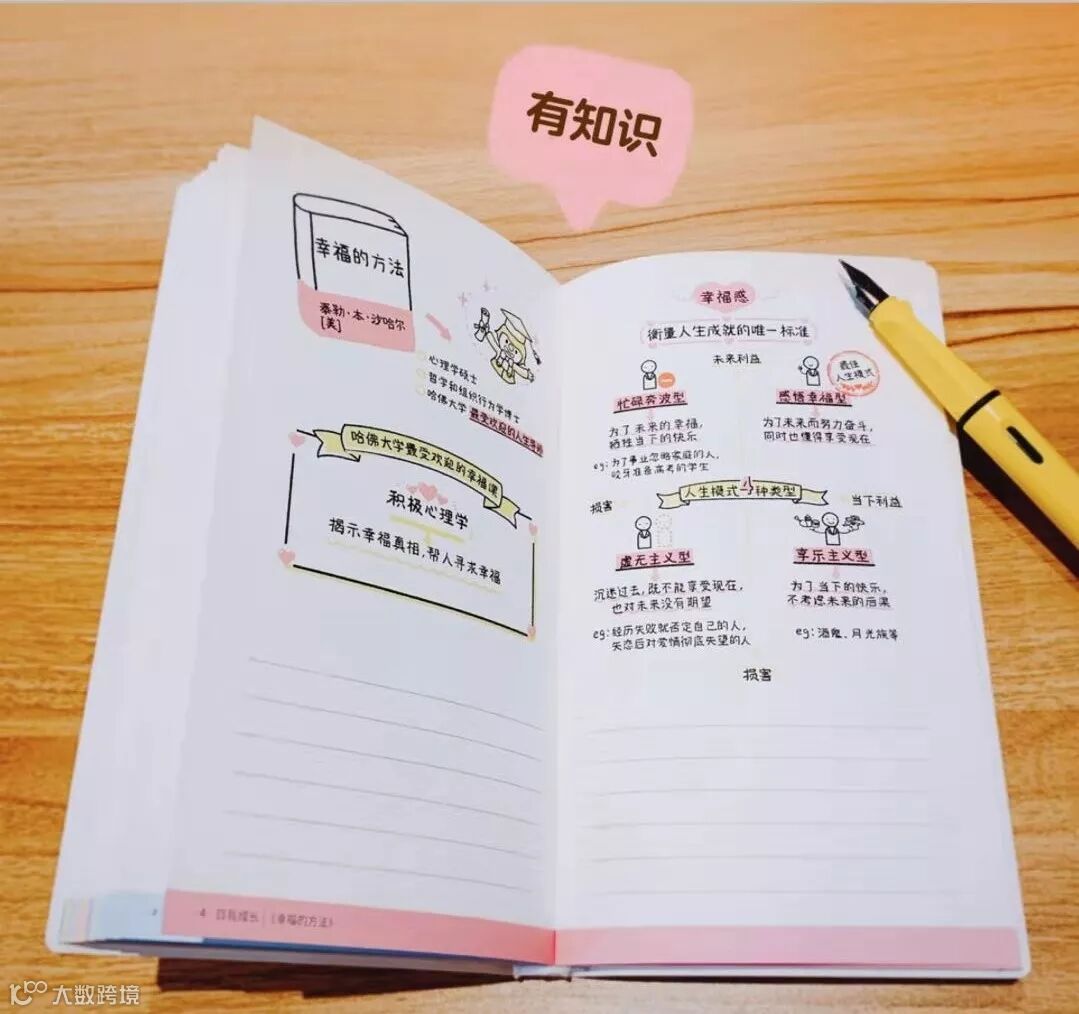 有知识
幸福的方法
泰勒·本·沙哈尔
[美]
心理学硕士
哲学和组织行为学博士
哈佛大学 最受欢迎的人生导师
哈佛大学最受欢迎的幸福课
积极心理学
揭示幸福真相,帮人寻求幸福
4 自我成长 |《幸福的方法》
幸福感
衡量人生成就的唯一标准
未来利益
忙碌奔波型
为了未来的幸福,
牺牲当下的快乐
eg:为了事业忽略家庭的人,
咬牙准备高考的学生
最佳
人生模式
感悟幸福型
为了未来而努力奋斗,
同时也懂得享受现在
损害
人生模式4种类型
当下利益
虚无主义型
沉迷过去,既不能享受现在,
也对未来没有期望
eg:经历失败就否定自己的人,
失恋后对爱情彻底失望的人
享乐主义型
为了当下的快乐,
不考虑未来的后果
eg:酒鬼、月光族等
损害
大数跨境